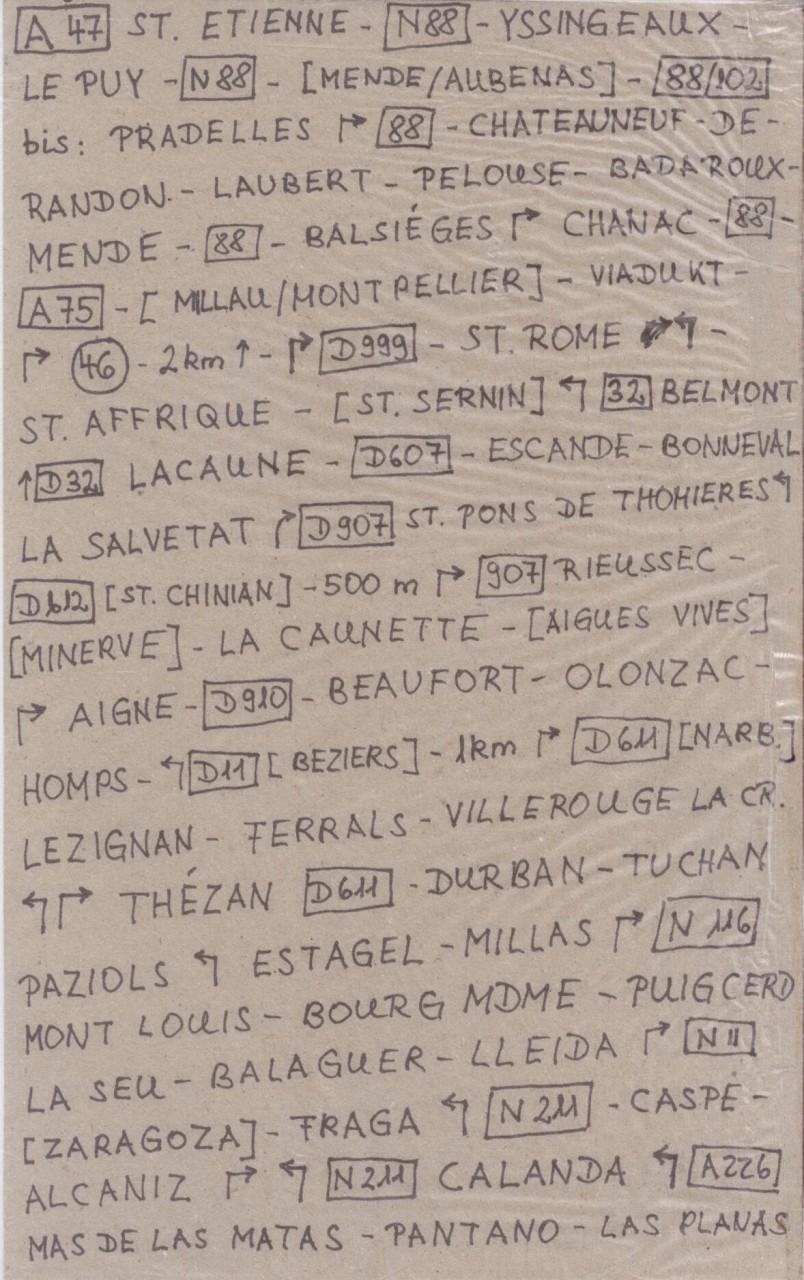 A 47 ST. ETIENNE - N88 - YSSINGEAUX -
LE PUY - N88 - [MENDE/AUBENAS] - 88/102
bis: PRADELLES ↱ 88 - CHATEAUNEUF-DE-
RANDON - LAUBERT - PELOUSE - BADAROUX -
MENDE - 88 - BALSIÉGES ↱ CHANAC - 88 -
A75 - [MILLAU/MONTPELLIER] - VIADUKT -
↱ 46 - 2km ↑ - ↱ D999 - ST. ROME ↰ -
ST. AFFRIQUE - [ST. SERNIN] ↰ 32 BELMONT
↑ D32 LACAUNE - D607 - ESCANDE - BONNEVAL
LA SALVETAT ↱ D907 ST. PONS DE THOMIERES ↰
D612 [ST. CHINIAN] - 500 m ↱ 907 RIEUSSEC -
[MINERVE] - LA CAUNETTE - [AIGUES VIVES]
↱ AIGNE - D910 - BEAUFORT - OLONZAC -
HOMPS - ↰ D11 [BEZIERS] - 1km ↱ D611 [NARB.]
LEZIGNAN - FERRALS - VILLEROUGE LA CR.
↰ ↱ THÉZAN D611 - DURBAN - TUCHAN
PAZIOLS ↰ ESTAGEL - MILLAS ↱ N 116
MONT LOUIS - BOURG MDME - PUIGCERD
LA SEU - BALAGUER - LLEIDA ↱ N II
[ZARAGOZA] - FRAGA ↰ N 211 - CASPE -
ALCANIZ ↱ ↰ N 211 CALANDA ↰ A226
MAS DE LAS MATAS - PANTANO - LAS PLANAS